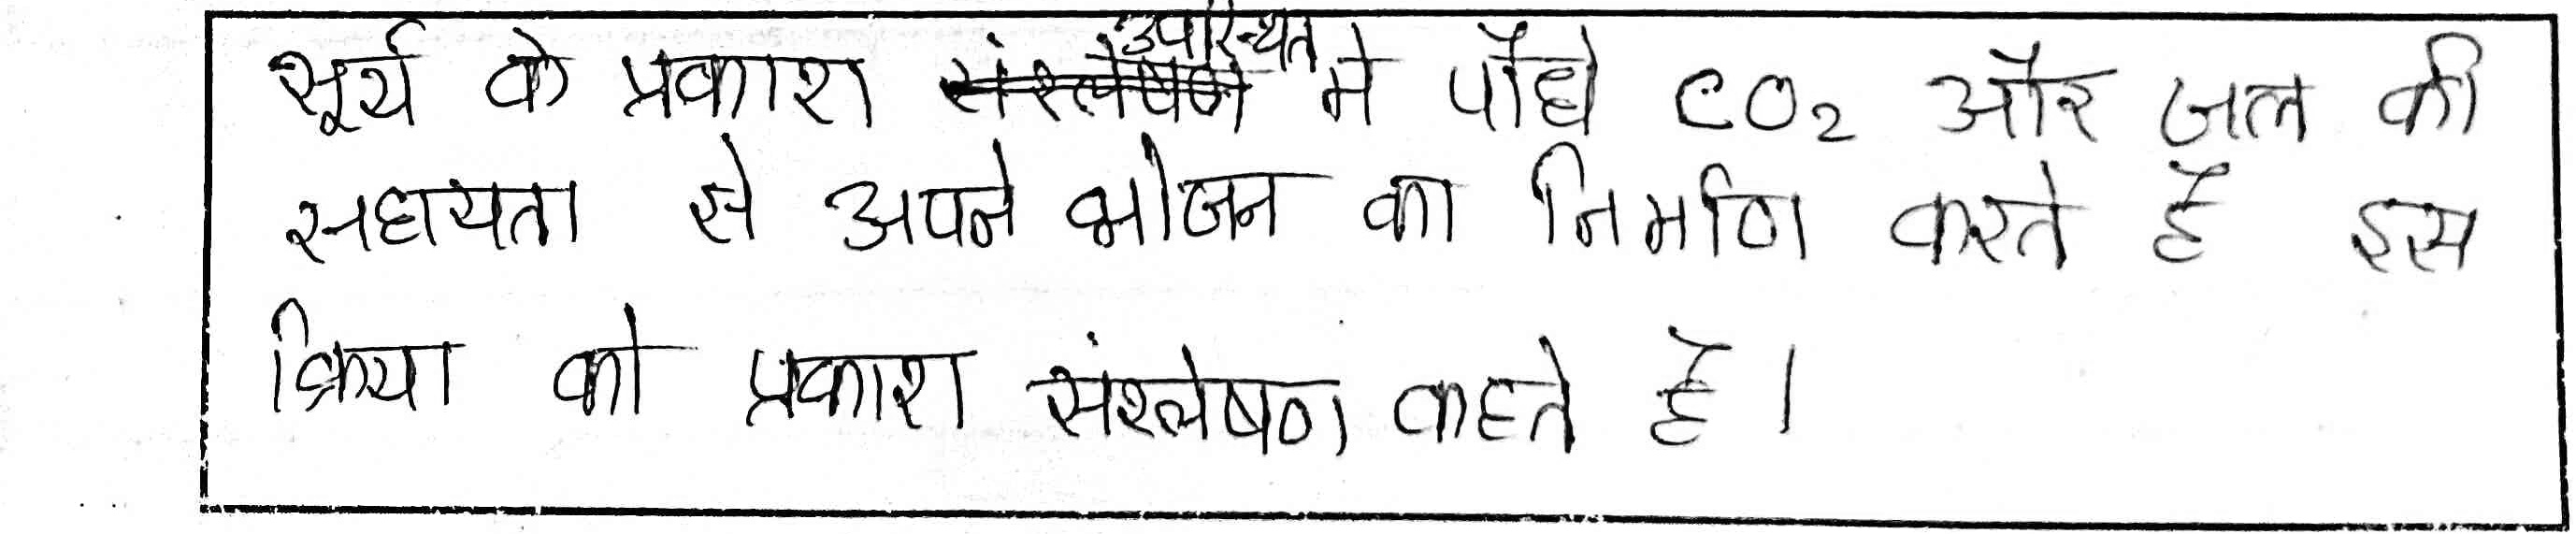 सूर्य के प्रकाश उपस्थित मे पौधे CO₂ और जल की
सहायता से अपने भोजन का निर्माण करते है इस
क्रिया को प्रकाश संश्लेषण कहते है।